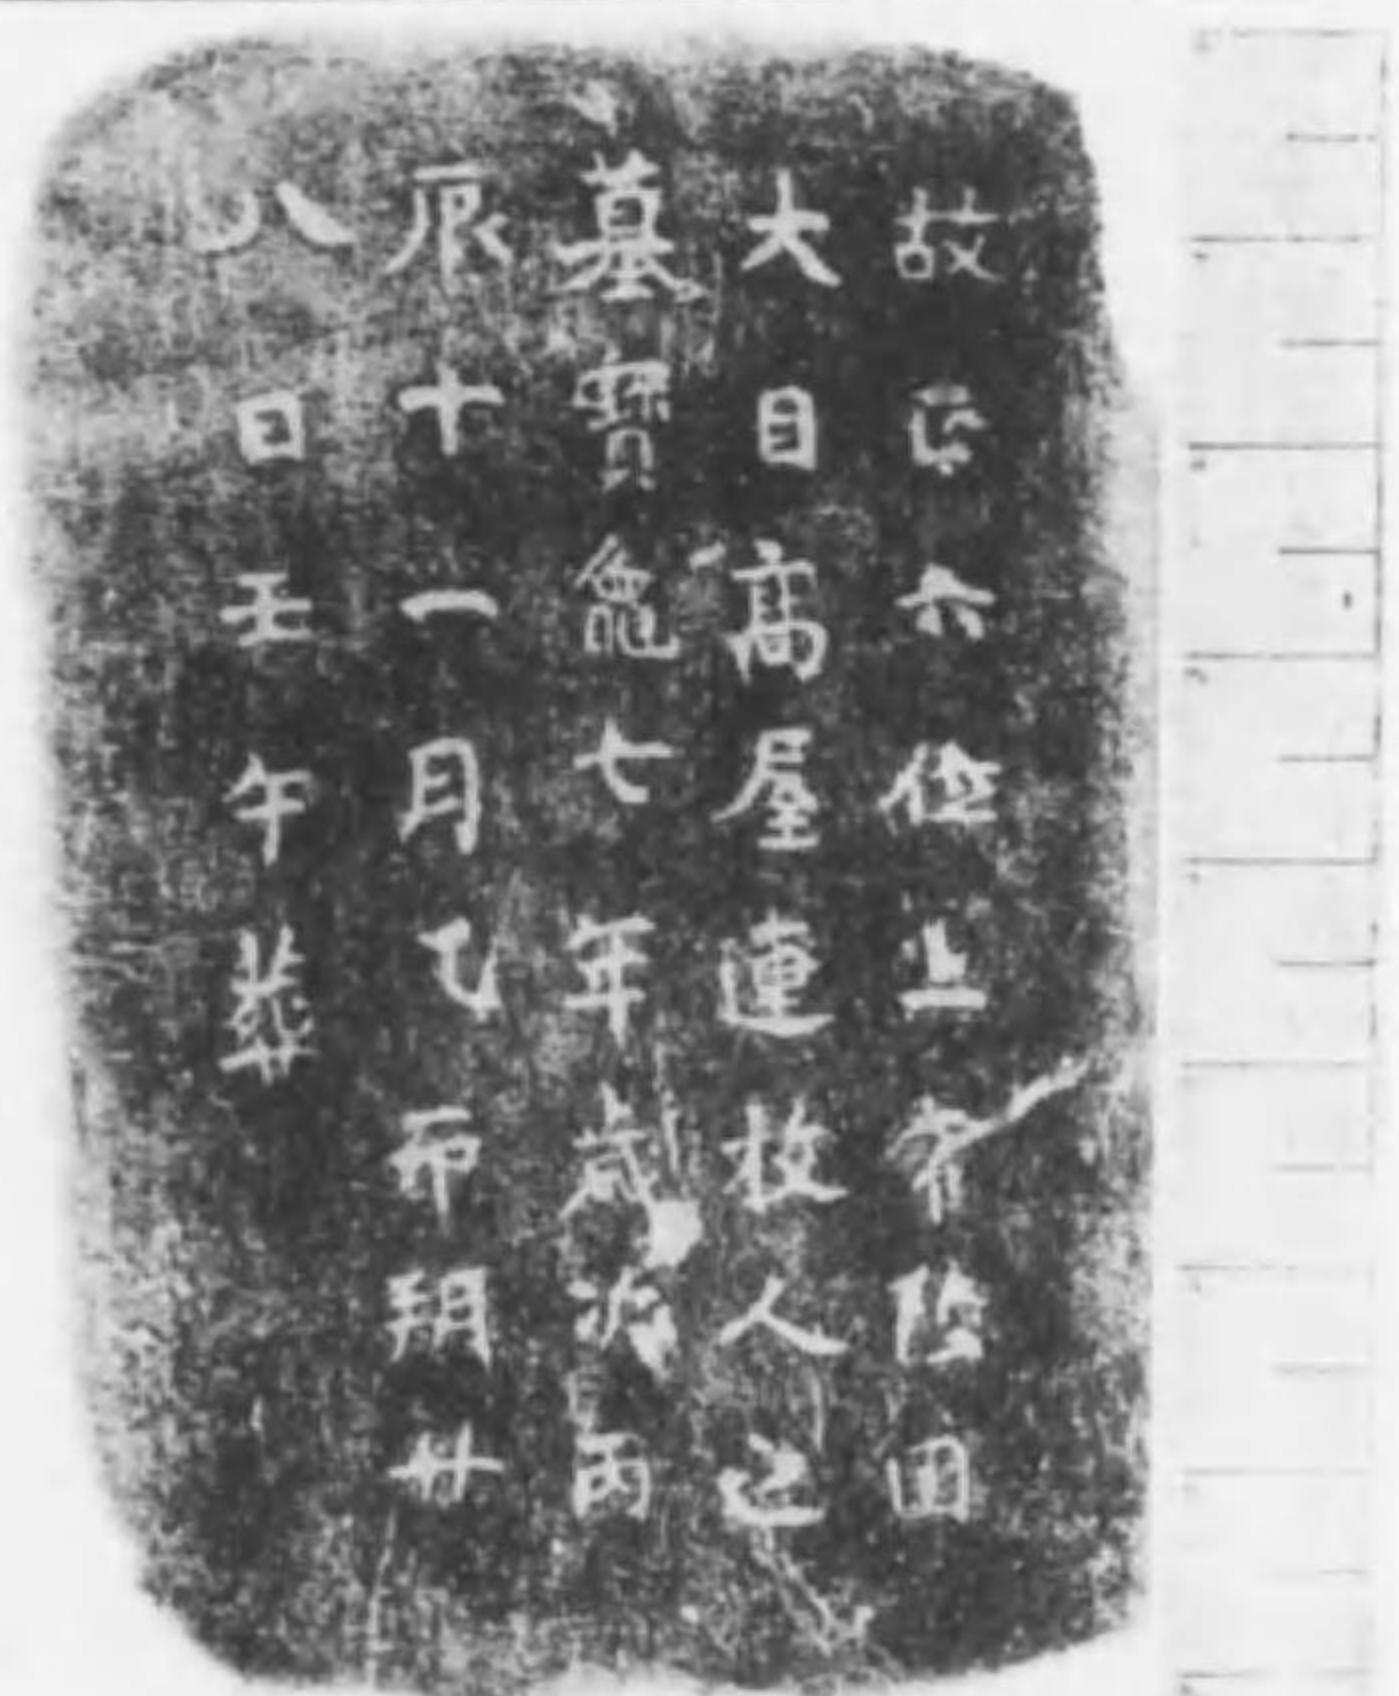 故正六位上常陸国
大目髙屋連枚人之
墓寳龜七年歳次丙
辰十一月乙卯朔廿
八日壬午葬